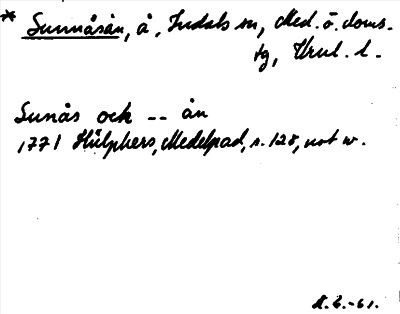 * Sunnåsån, å, Indals sn, Med. ö. doms.
tg, Vnrl. l.
Sunås och -- ån
1771 Hülphers, Medelpad, s. 128, not w.